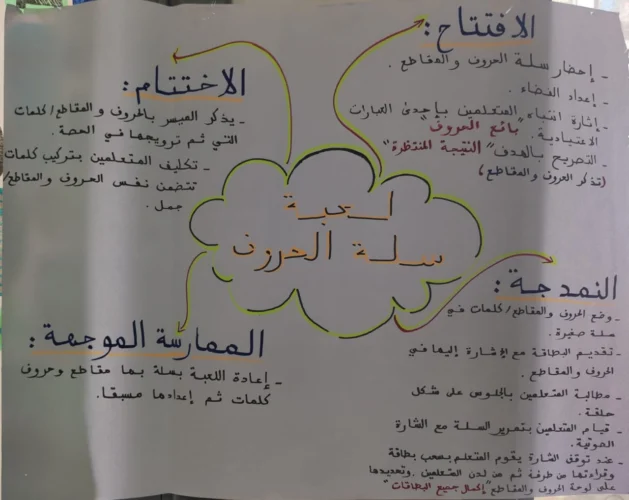 لعبة
سلة الحروف
الافتتاح:
- إحضار سلة الحروف والمقاطع.
- إعداد الفضاء.
- إثارة انتباه المتعلمين بإحدى العبارات
الاعتيادية. "بائع الحروف"
- التصريح بالهدف "النتيجة المنتظرة"
(تذكر الحروف والمقاطع)
النمذجة:
- وضع الحروف والمقاطع/كلمات في
سلة صغيرة.
- تقديم البطاقة مع الإشارة إليها في
الحروف والمقاطع.
- مطالبة المتعلمين بالجلوس على شكل
حلقة.
- قيام المتعلمين بتمرير السلة مع الشارة
الصوتية.
- عند توقف الشارة يقوم المتعلم بسحب بطاقة
وقراءتها من طرفه ثم من لدن المتعلمين. وتحديدها
على لوحة الحروف والمقاطع "إكمال جميع البطاقات"
الممارسة الموجهة:
- إعادة اللعبة بسلة بها مقاطع وحروف
كلمات تم إعدادها مسبقا.
الاختتام:
- يذكر الميسر بالحروف والمقاطع/كلمات
التي تم ترويجها في الحصة.
- تكليف المتعلمين بتركيب كلمات
تتضمن نفس الحروف والمقاطع/
جمل.